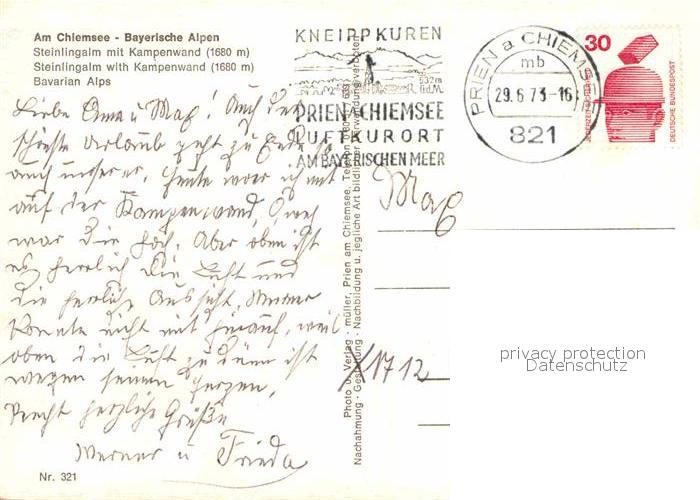 Am Chiemsee - Bayerische Alpen
Steinlingalm mit Kampenwand (1680 m)
Steinlingalm with Kampenwand (1680 m)
Bavarian Alps
KNEIPPKUREN
532m
ü.d.M.
PRIEN A. CHIEMSEE
LUFTKURORT
AM BAYERISCHEN MEER
PRIEN a CHIEMSEE
mb
29.6.73-16
821
30
DEUTSCHE BUNDESPOST
Liebe Anna u Max! Auch der
schönste Urlaub geht zu Ende so
auch unserer. Heute war ich mit
auf der Kampenwand, O weh
war die hoch. Aber oben ist
es herrlich die Luft und
die herrliche Aussicht. Werner
konnte nicht mit hinauf, weil
oben die Luft zu dünn ist
wegen seinem Herzen.
Recht herzliche Grüße
Werner u Frieda
Max
X 1712
Nr. 321
Photo u. Verlag müller, Prien am Chiemsee, Telefon
Nachahmung - Gestaltung - Nachbildung u. jegliche Art bildlicher Verwendung verboten
privacy protection
Datenschutz